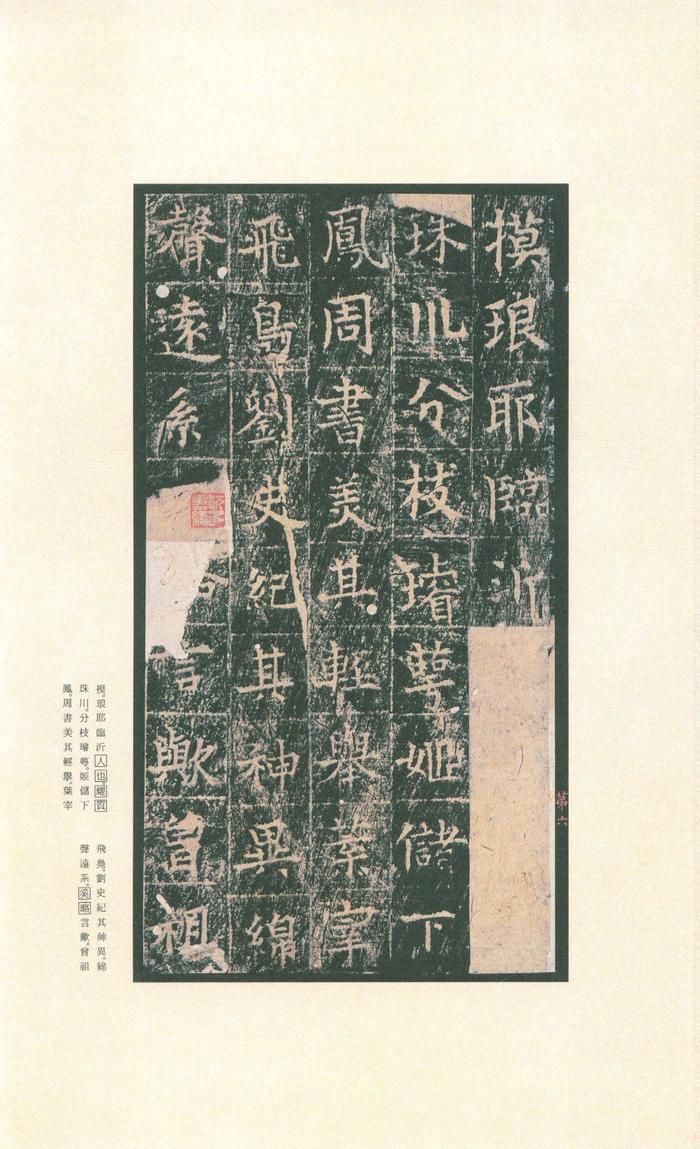 摸琅耶臨沂
珠川分枝璿萼姬儲下
鳳周書美其輕舉葉宰
飛鳧劉史紀其神異綿
聲遠系言歟曾祖
第六
摸。琅耶臨沂人也。耀質
珠川。分枝璿萼。姬儲下
鳳。周書美其輕擧。葉宰
飛鳧。劉史紀其神異。綿
聲遠系。奚略言歟。曾祖